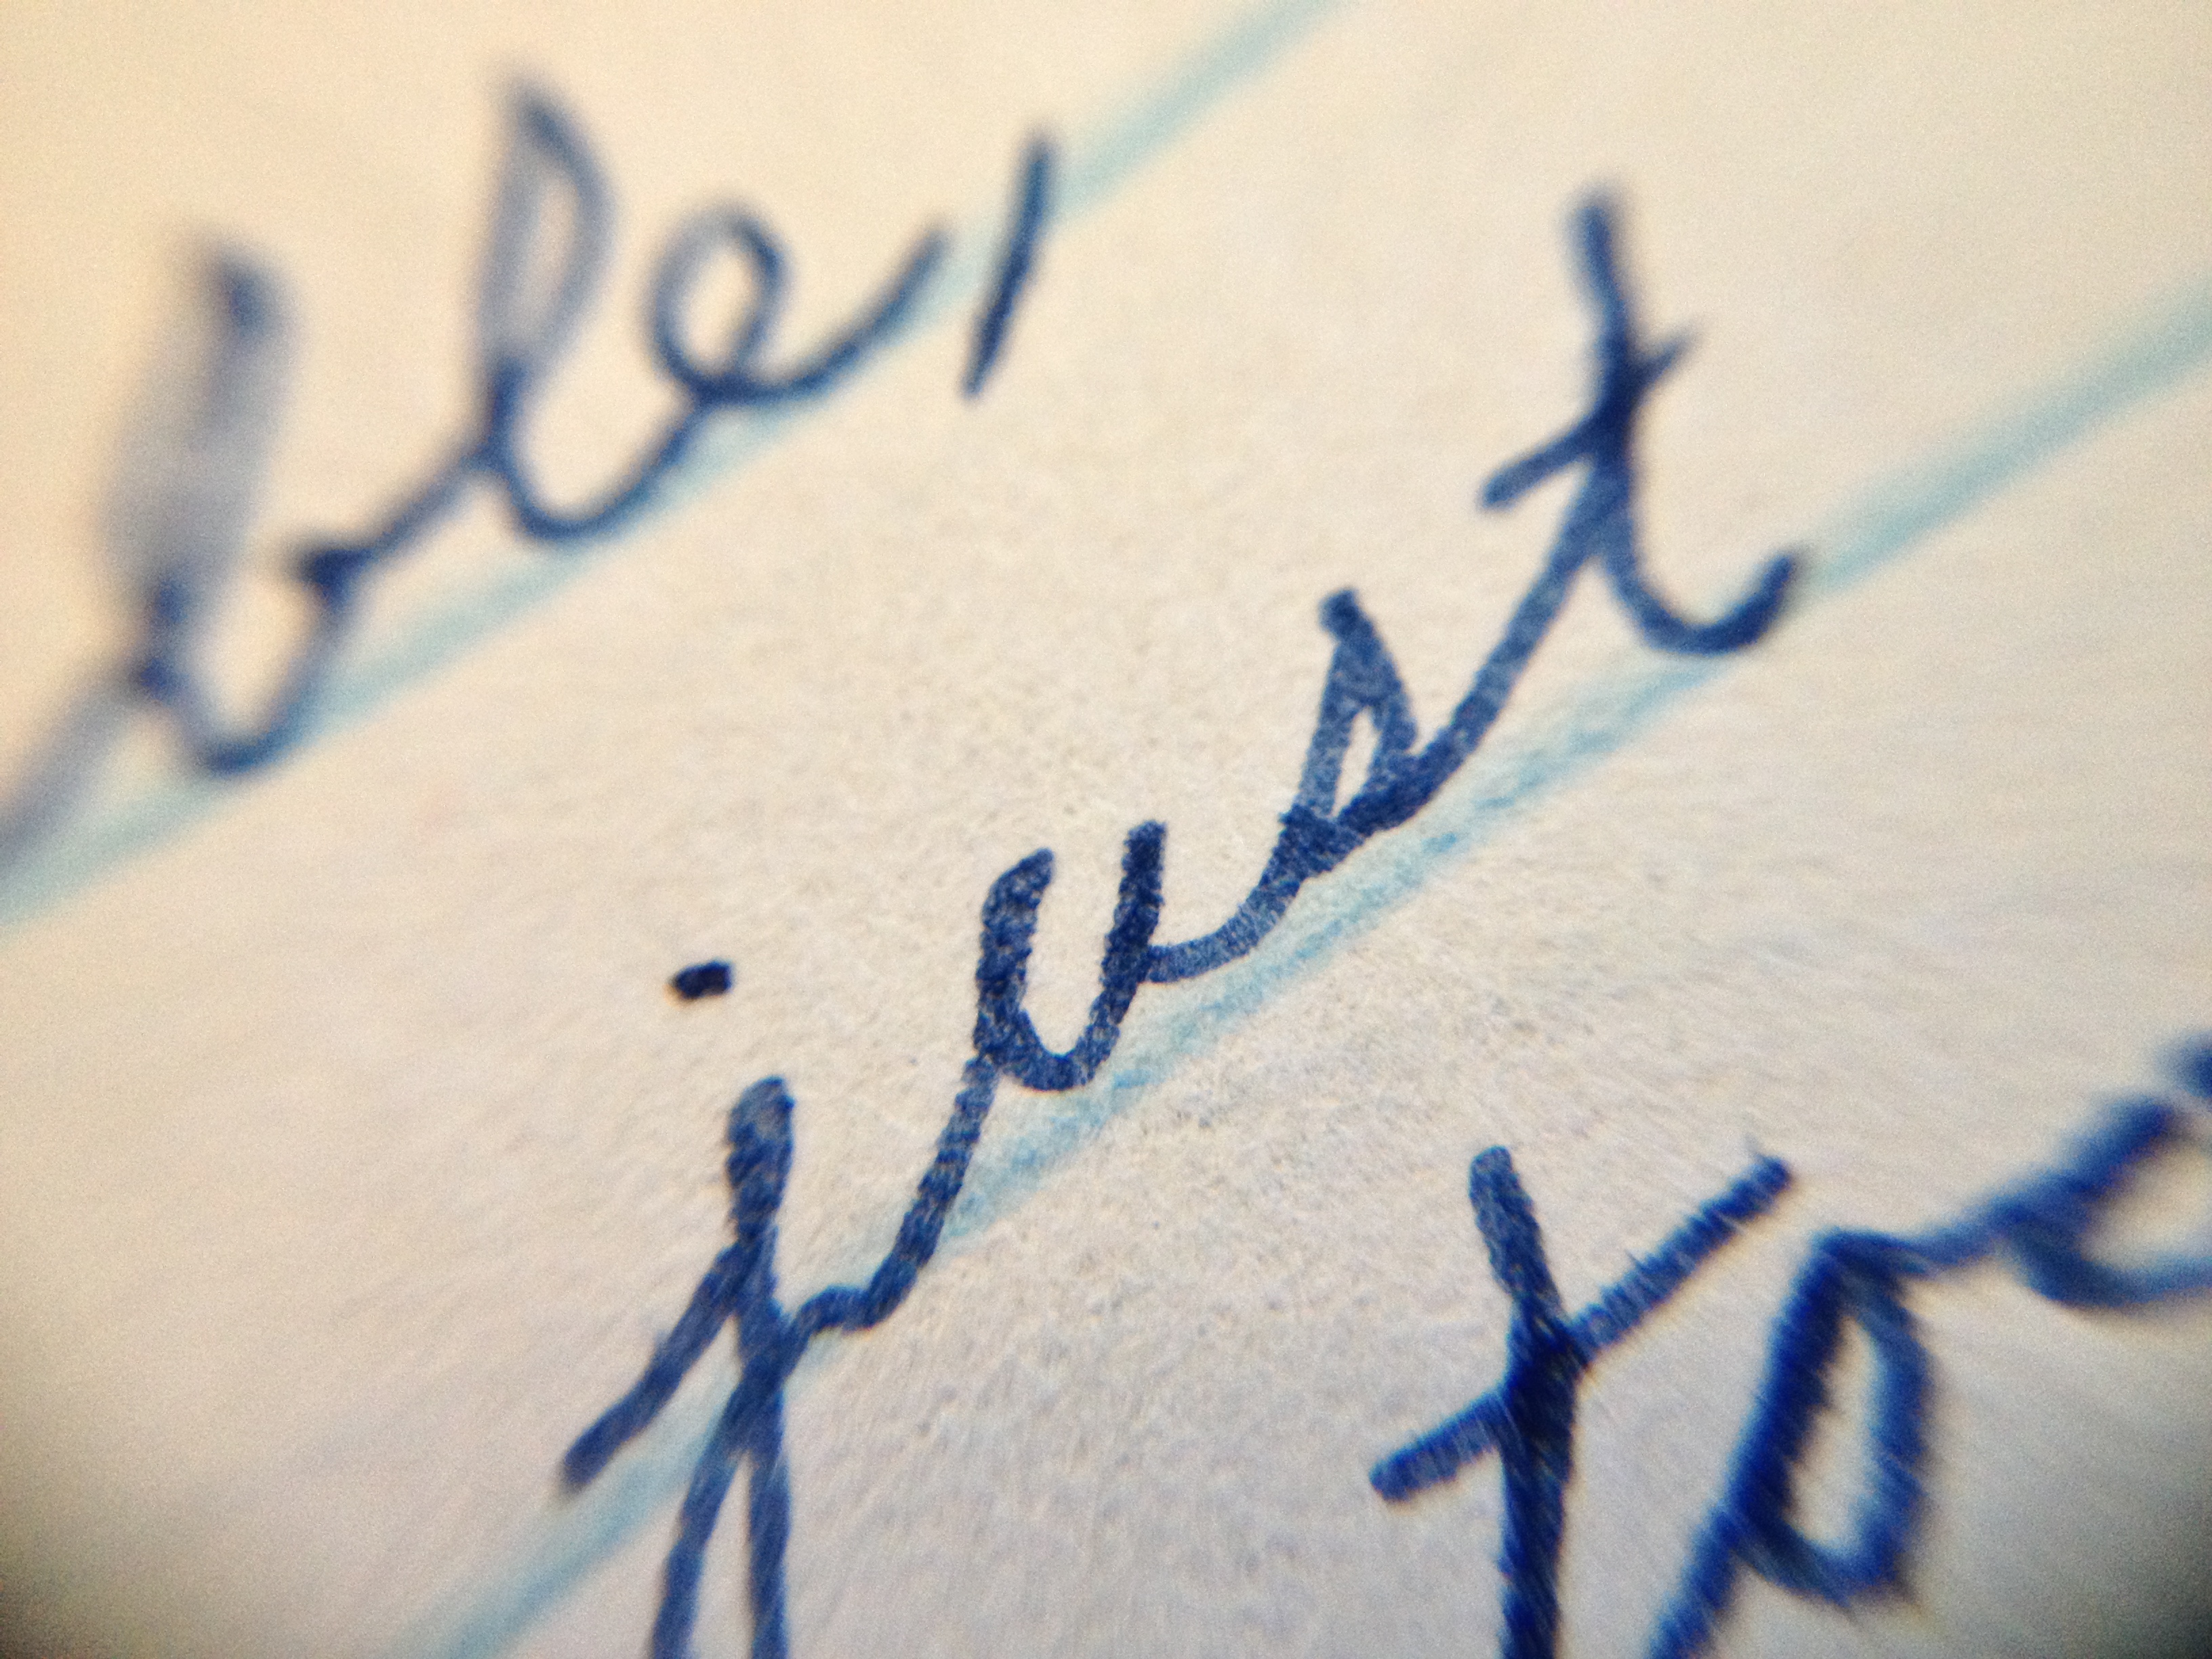 ble,
just
to